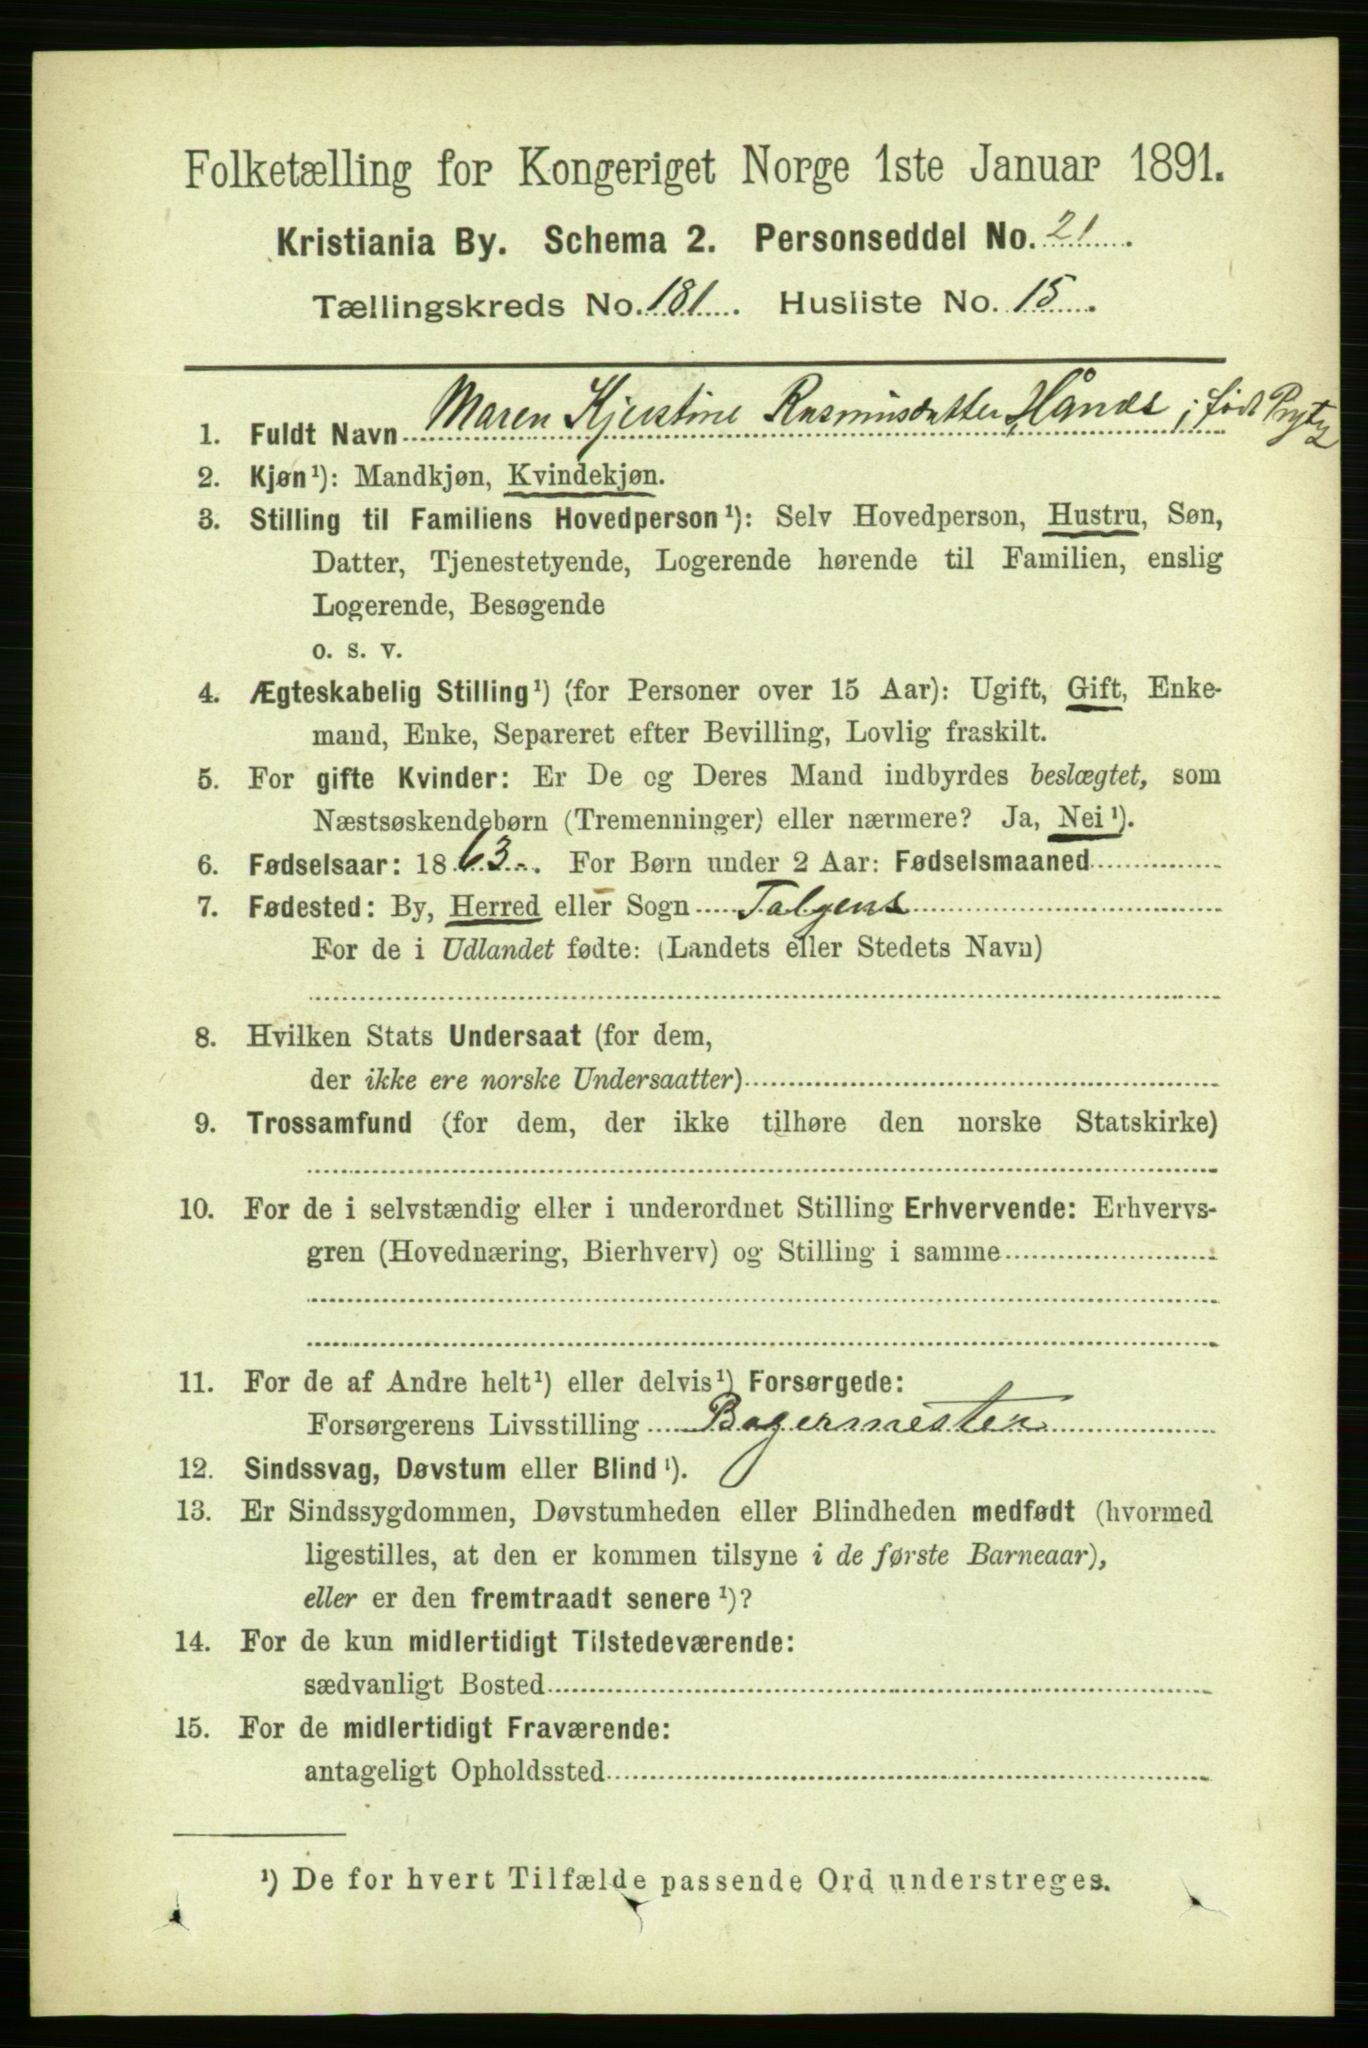 Folketælling for Kongeriget Norge 1ste Januar 1891.
Kristiania By. Schema 2. Personseddel No. 21.
Tællingskreds No. 181. Husliste No. 15.
1. Fuldt Navn Maren Kjerstine Rasmusdatter Hånes; født Prytz
2. Kjøn¹): Mandkjøn, Kvindekjøn.
3. Stilling til Familiens Hovedperson¹): Selv Hovedperson, Hustru, Søn,
Datter, Tjenestetyende, Logerende hørende til Familien, enslig
Logerende, Besøgende
o. s. v.
4. Ægteskabelig Stilling¹) (for Personer over 15 Aar): Ugift, Gift, Enke-
mand, Enke, Separeret efter Bevilling, Lovlig fraskilt.
5. For gifte Kvinder: Er De og Deres Mand indbyrdes beslægtet, som
Næstsøskendebørn (Tremenninger) eller nærmere? Ja, Nei¹).
6. Fødselsaar: 1863. For Børn under 2 Aar: Fødselsmaaned
7. Fødested: By, Herred eller Sogn Talgens
For de i Udlandet fødte: (Landets eller Stedets Navn)
8. Hvilken Stats Undersaat (for dem,
der ikke ere norske Undersaatter)
9. Trossamfund (for dem, der ikke tilhøre den norske Statskirke)
10. For de i selvstændig eller i underordnet Stilling Erhvervende: Erhvervs-
gren (Hovednæring, Bierhverv) og Stilling i samme
11. For de af Andre helt¹) eller delvis¹) Forsørgede:
Forsørgerens Livsstilling Bagermester
12. Sindssvag, Døvstum eller Blind¹).
13. Er Sindssygdommen, Døvstumheden eller Blindheden medfødt (hvormed
ligestilles, at den er kommen tilsyne i de første Barneaar),
eller er den fremtraadt senere¹)?
14. For de kun midlertidigt Tilstedeværende:
sædvanligt Bosted
15. For de midlertidigt Fraværende:
antageligt Opholdssted
¹) De for hvert Tilfælde passende Ord understreges.